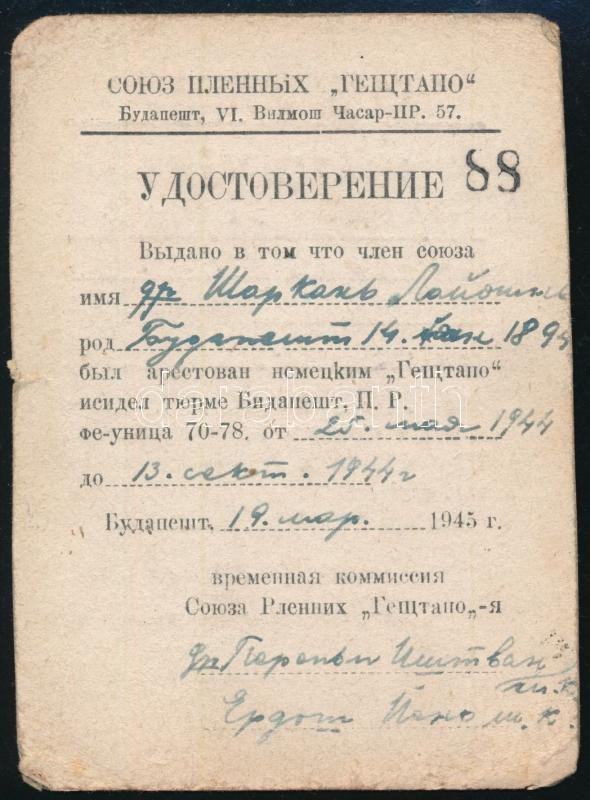 СОЮЗ ПЛЕННЫХ „ГЕЩТАПО“
Будапешт, VI. Вилмош Часар-ПР. 57.
УДОСТОВЕРЕНИЕ 88
Выдано в том что член союза
имя др Шаркань Лайошне
род Будапешт 14. 1894
был арестован немецким „Гещтапо“
исидел тюрме Бидапешт, П. Р.
фе-уница 70-78. от 25. мая 1944
до 13. сект. 1944 г
Будапешт, 19. мар. 1945 г.
временная коммиссия
Союза Рленних „Гещтапо„-я
др Иштван
м. к.
Ердош м. к.